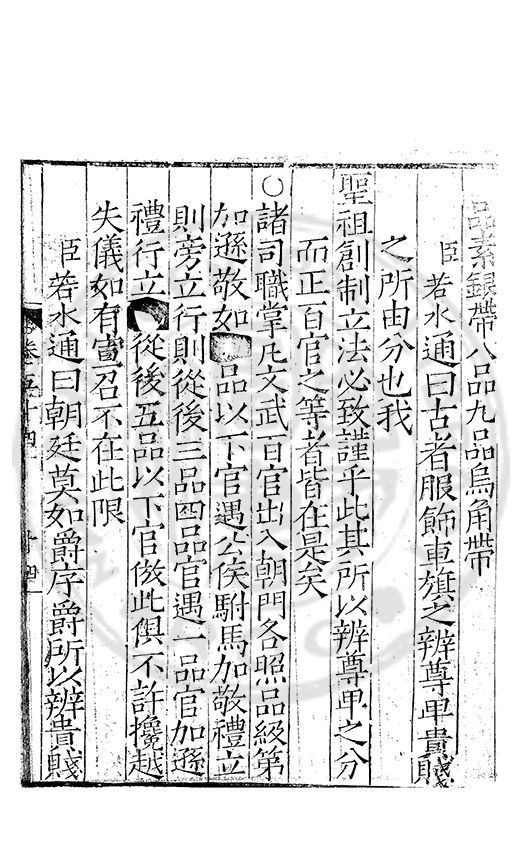 品素銀帶八品九品烏角帶
臣若水通曰古者服飾車旗之辨尊卑貴賤
之所由分也我
聖祖創制立法必致謹乎此其所以辨尊卑之分
而正百官之等者皆在是矣
○諸司職掌凡文武百官出入朝門各照品級第
加遜敬如品以下官遇公侯駙馬加敬禮立
則旁立行則從後三品四品官遇一品官加遜
禮行立從後五品以下官倣此俱不許攙越
失儀如有宣召不在此限
臣若水通曰朝廷莫如爵序爵所以辨貴賤
卷五十四